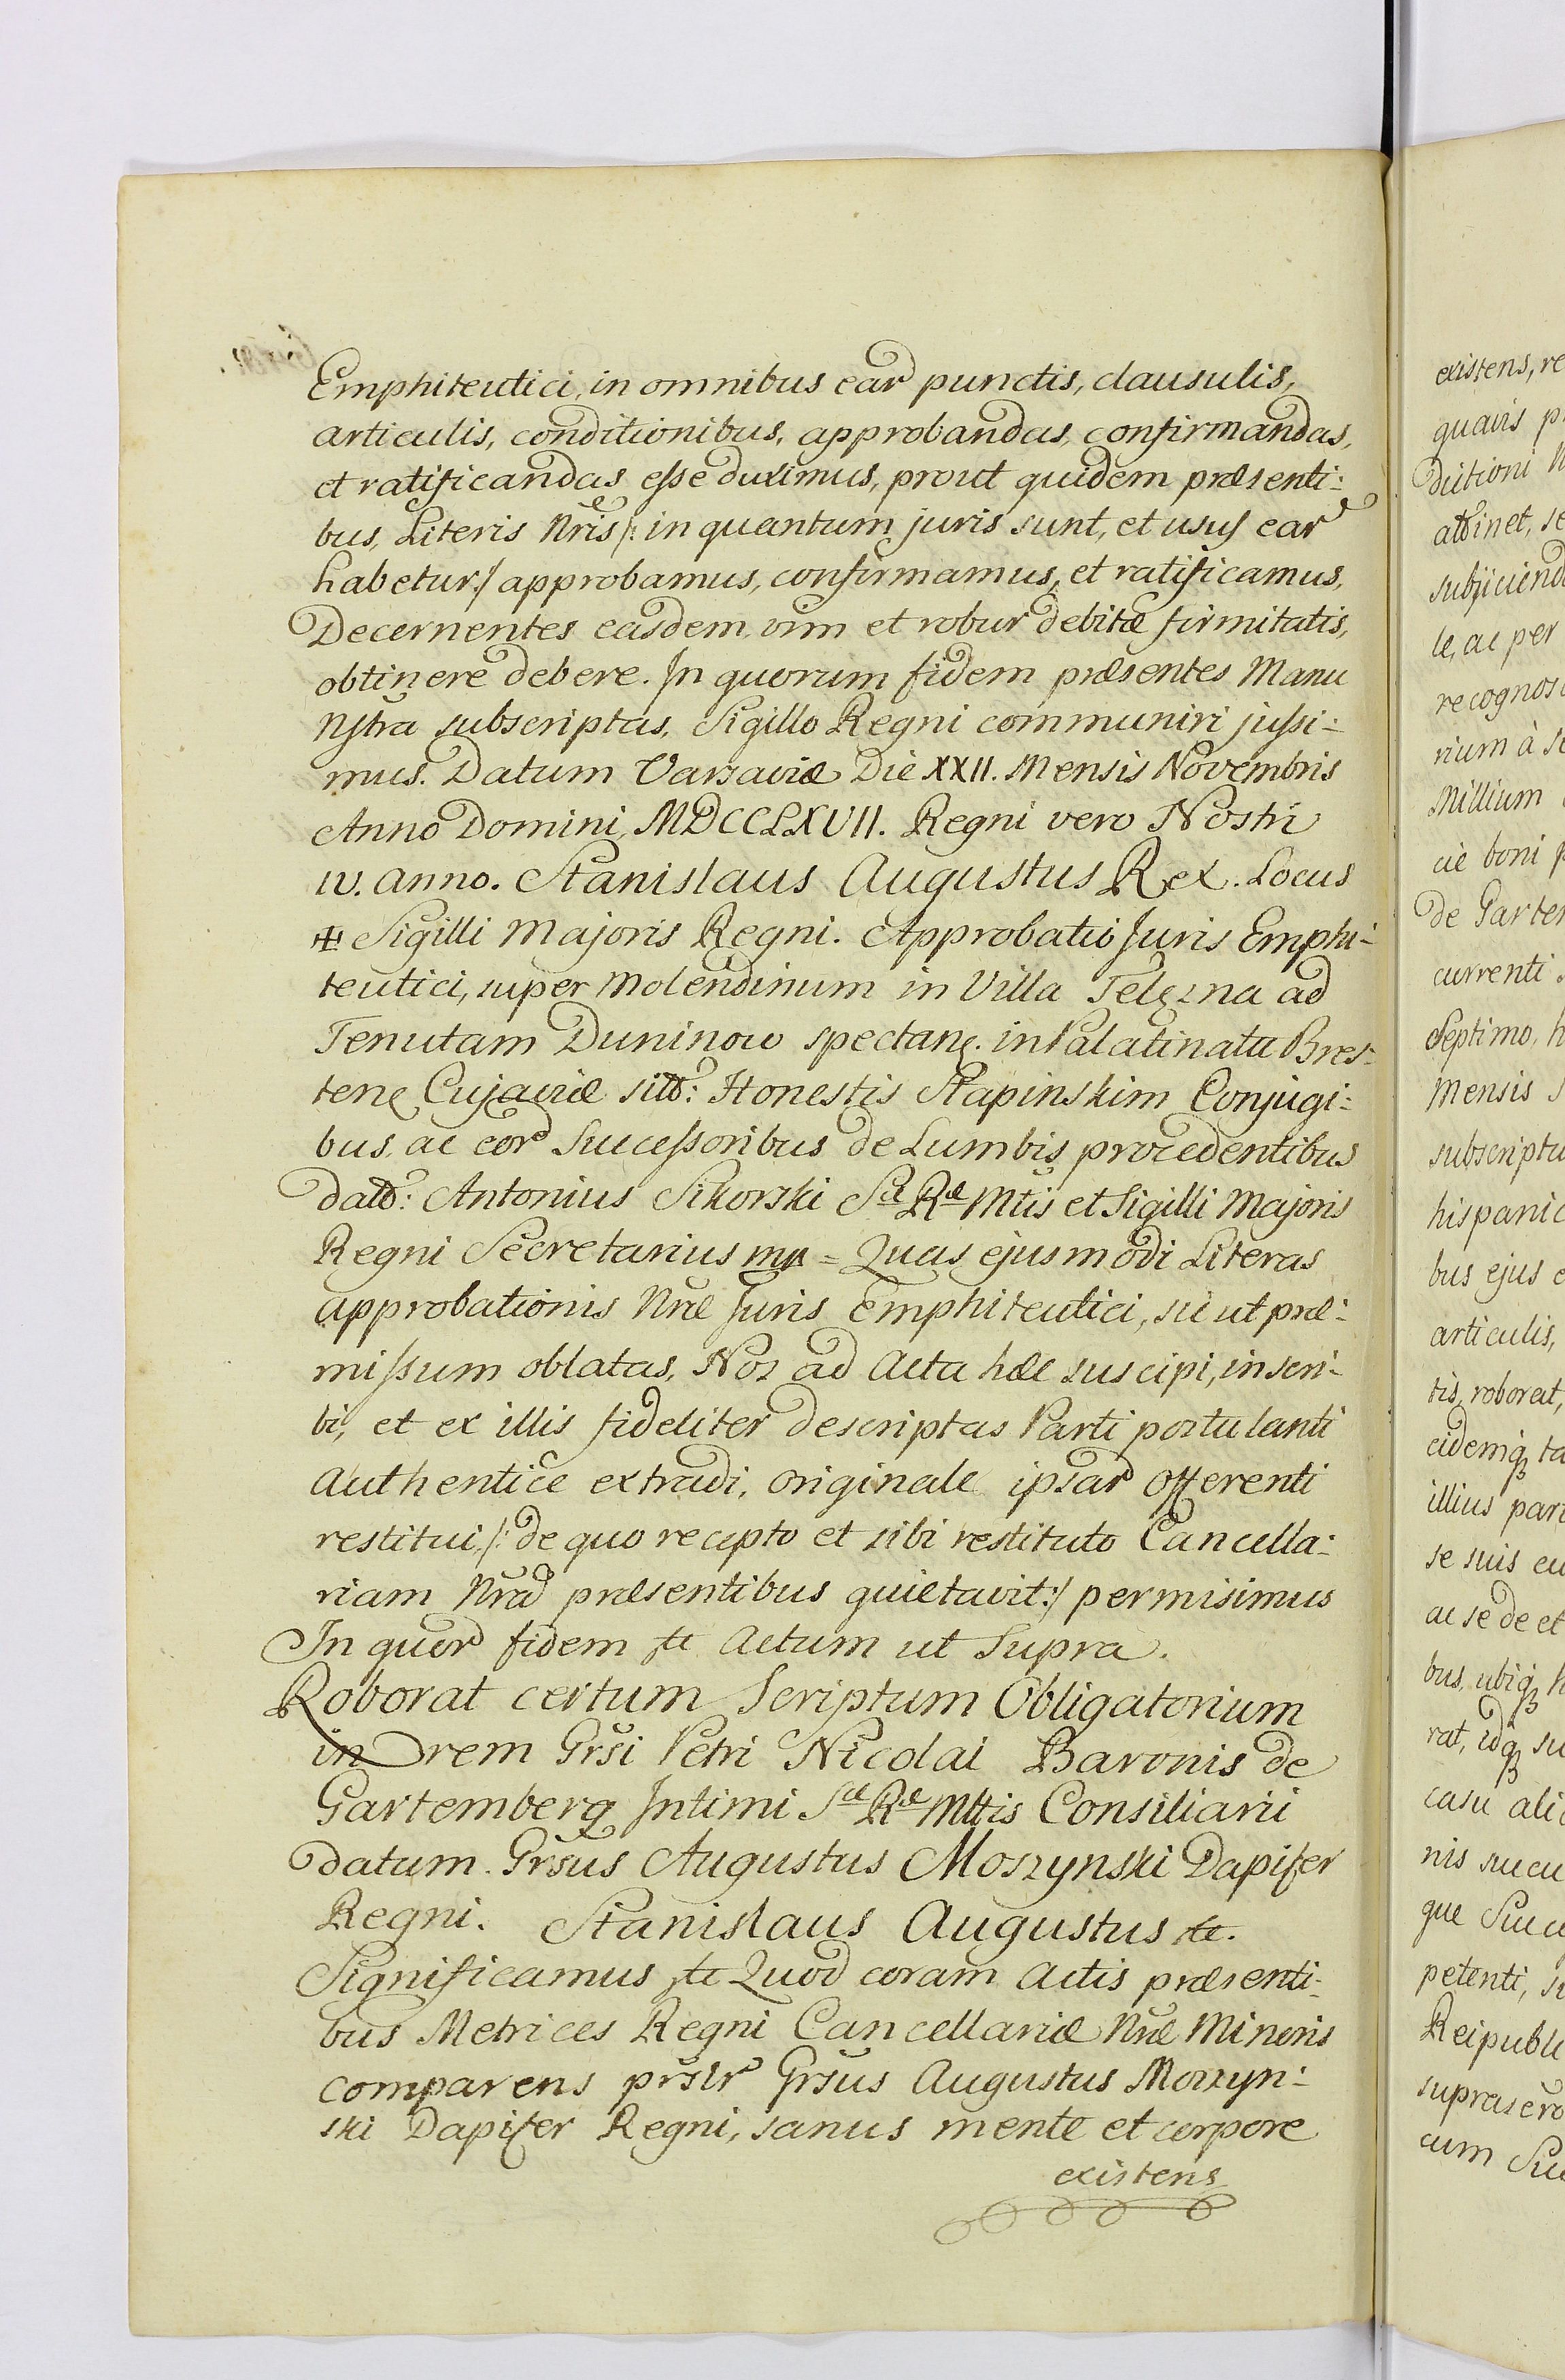 Emphiteutici, in omnibus ear punctis, clausulis,
articulis, conditionibus, approbandas, confirmandas,
et ratificandas esse duximus, prout quidem præsenti:
bus, Literis Nris /: in quantum juris sunt, et usus ear
habetur :/ approbamus, confirmamus, et ratificamus,
Decernentes easdem, vim et robur debitæ firmitatis,
obtinere debere. In quorum fidem præsentes Manu
Nstra subscriptas, Sigillo Regni communiri jussi:
mus. Datum Varsaviæ Die XXII. Mensis Novembris
Anno Domini, MDCCLXVII. Regni vero Nostri
IV. anno. Stanislaus Augustus Rex. Locus
Sigilli Majoris Regni. Approbatio Juris Emphi:
teutici, super Molendinum in Villa Telęzna ad
Tenutam Duninow spectan. in Palatinatu Bres:
ten Cujaviæ sitt: Honestis Stapinskim Conjugi:
bus, ac eor Successoribus de Lumbis procedentibus
datt: Antonius Sikorski Sæ Ræ Mtis et Sigilli Majoris
Regni Secretarius mp = Quas ejusmodi Literas
approbationis Nræ Juris Emphiteutici, sic ut præ:
missum oblatas, Nos ad Acta hæc suscipi, inscri:
bi, et ex illis fideliter descriptas Parti postulanti
authentice extradi, originale ipsar offerenti
restitui /: de quo recepto et sibi restituto Cancella:
riam Nram præsentibus quietavit :/ permisimus
In quor fidem etc Actum ut Supra.
Roborat certum Scriptum Obligatorium
in rem Grsi Petri Nicolai Baronis de
Gartemberg Intimi Sæ Ræ Mttis Consiliarii
datum. Grsus Augustus Moszynski Dapifer
Regni. Stanislaus Augustus etc.
Significamus etc Quod coram Actis præsenti:
bus Metrices Regni Cancellariæ Nræ Minoris
comparens prslr Grsus Augustus Moszyn:
ski Dapifer Regni, sanus mente et corpore
existens
existens, re
quavis p
dictioni
attinet, se
subjiciend
le, ac per
recognos
rium à se
Millium
cie boni p
de Garte
currenti
Septimo, h
Mensis S
subscriptu
hispanic
bus ejus e
articulis,
tis, roborat,
eidemq ta
illius part
se suis eu
ac se de et
bus, ubiq h
rat, idq su
casu ali
nis succu
que Succ
petenti, s
Reipubl
suprascr
cum Suc